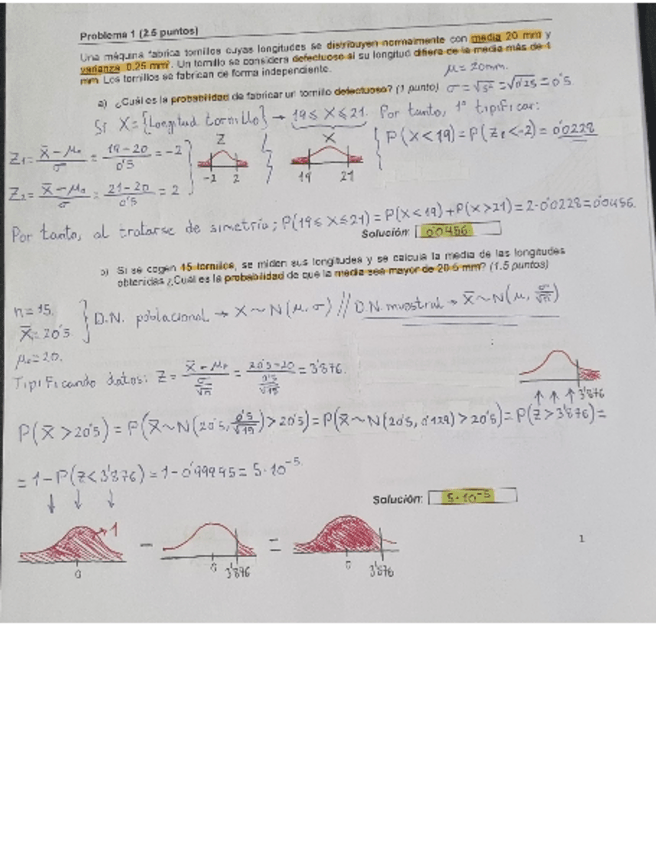 Problema 1 (2.5 puntos)
Una máquina fabrica tornillos cuyas longitudes se distribuyen normalmente con media 20 mm y
varianza 0.25 mm². Un tornillo se considera defectuoso si su longitud difiere de la media más de 1
mm. Los tornillos se fabrican de forma independiente.
μ = 20mm.
a) ¿Cuál es la probabilidad de fabricar un tornillo defectuoso? (1 punto) σ = √s² = √0'25 = 0'5
Si X = {Longitud tornillo} → 19 ≤ X ≤ 21. Por tanto, 1º tipificar:
Z₁ = X̄ - μ₀ / σ = 19-20 / 0'5 = -2
Z
-2 2
X
19 21
P(X < 19) = P(Z₁ < -2) = 0'0228
Z₂ = X̄ - μ₀ / σ = 21-20 / 0'5 = 2
Por tanto, al tratarse de simetría; P(19 ≤ X ≤ 21) = P(X < 19) + P(X > 21) = 2·0'0228 = 0'0456.
Solución: 0'0456
b) Si se cogen 15 tornillos, se miden sus longitudes y se calcula la media de las longitudes
obtenidas ¿Cuál es la probabilidad de que la media sea mayor de 20.5 mm? (1.5 puntos)
n = 15.
X̄ = 20'5
μ₀ = 20.
D.N. poblacional → X ~ N(μ, σ) // D.N. muestral → X̄ ~ N(μ, σ/√n)
Tipificando datos: Z = X̄ - μ₀ / σ/√n = 20'5-20 / 0'5/√15 = 3'876.
3'876
P(X̄ > 20'5) = P(X̄ ~ N(20'5, 0'5/√15) > 20'5) = P(X̄ ~ N(20'5, 0'129) > 20'5) = P(Z > 3'876) =
= 1 - P(Z < 3'876) = 1 - 0'99995 = 5·10⁻⁵
Solución: 5·10⁻⁵
1
- =
0 0 3'876 0 3'876
1